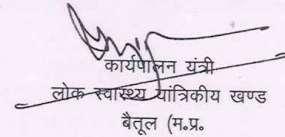 कार्यपालन यंत्री
लोक स्वास्थ्य यांत्रिकीय खण्ड
बैतूल (म.प्र.